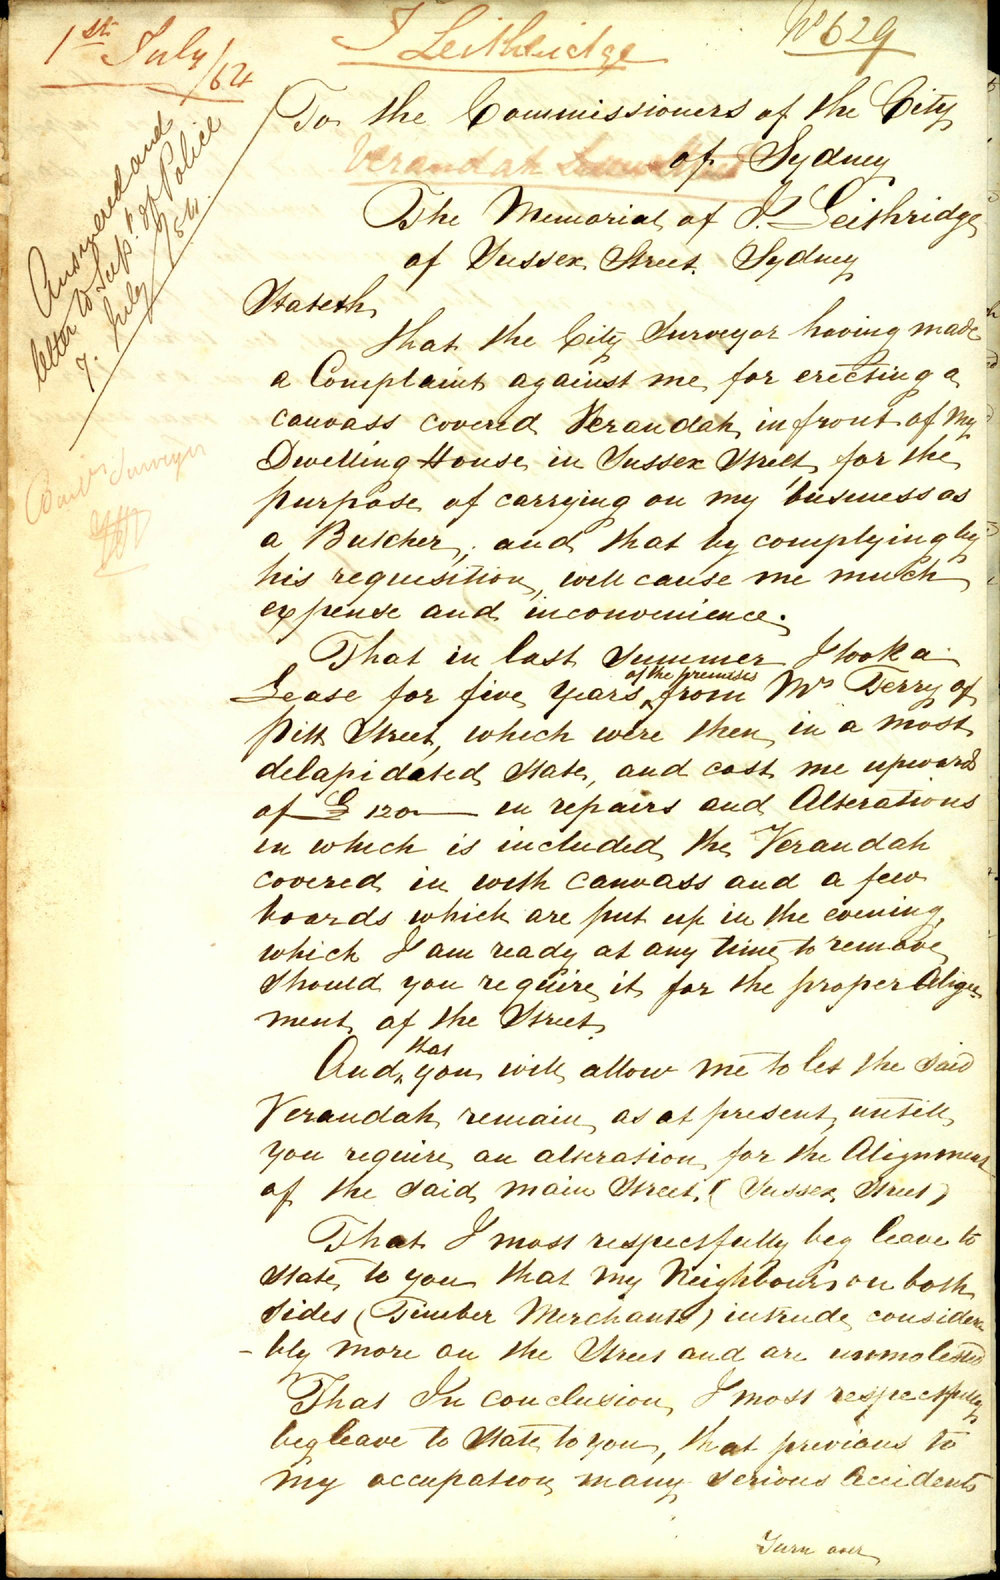 1st July /54
J Leithridge
No 629
Answered and
letter to Supt of Police
7. July /54.
To the Commissioners of the City
Verandah
of Sydney
The Memorial of J. Leithridge
of Sussex Street Sydney
Stateth
that the City Surveyor having made
a Complaint against me for erecting a
canvass covered Verandah in front of my
Dwelling House in Sussex Street for the
purpose of carrying on my business as
a Butcher, and that by complying by
his requisition, will cause me much
expense and inconvenience.
That in last Summer I took a
Lease for five years of the premises from Mrs Terry of
Pitt Street, which were then in a most
delapidated state, and cost me upwards
of £120 in repairs and Alterations
in which is included the Verandah
covered in with canvass and a few
boards which are put up in the evening,
which I am ready at any time to remove
should you require it for the proper Align
ment of the Street.
And that you will allow me to let the said
Verandah remain as at present untill
you require an alteration for the Alignment
of the said main Street. (Sussex Street)
That I most respectfully beg leave to
state to you that my Neighbours on both
sides (Timber Merchants) intrude considera
-bly more on the Street and are unmolested
That In conclusion I most respectfully
beg leave to state to you, that previous to
my occupation many serious Accidents
Turn over
City Surveyor